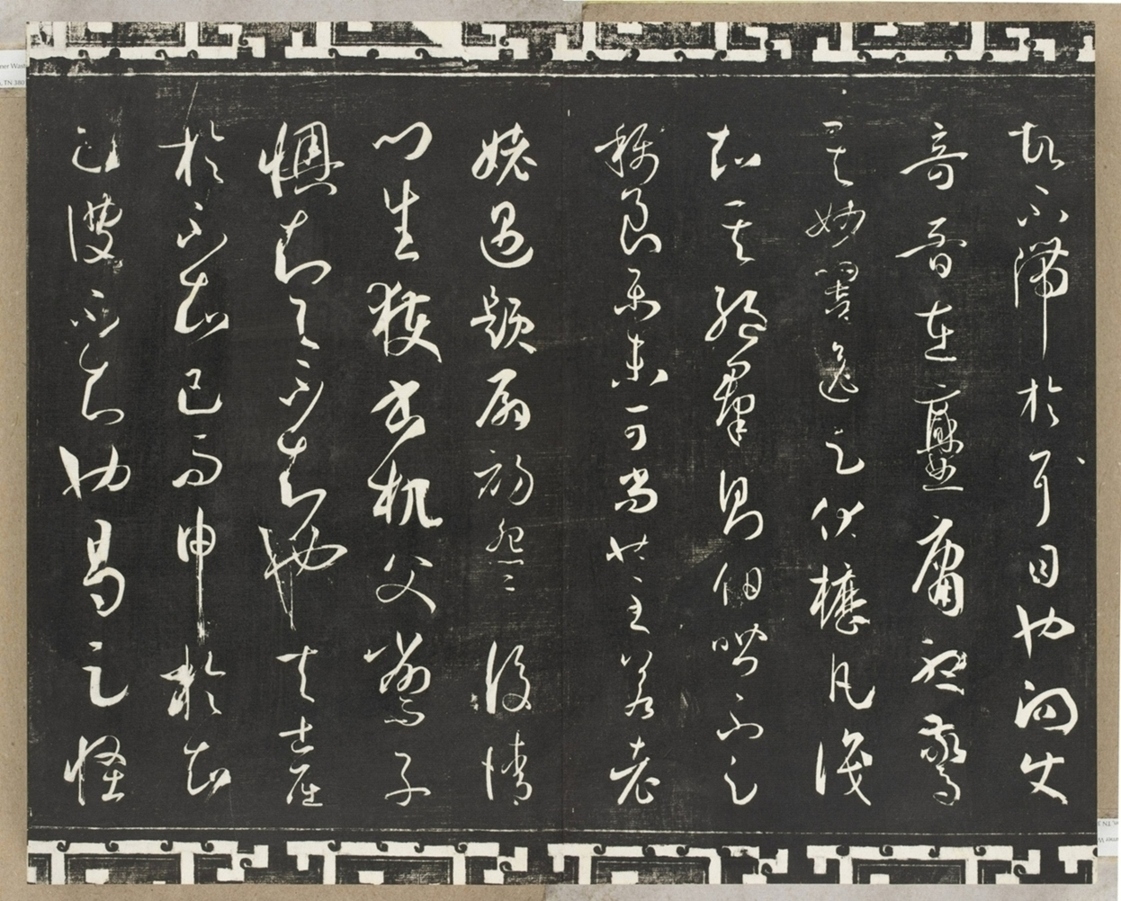 故不滯於耳目也向使
奇音在爨庸聽驚
其妙響逸足伏櫪凡識
知其絕群則伯喈不足
稱良樂未可尚也至若老
姥遇題扇初怨而後請
門生獲書机父削而子
懊知與不知也夫士屈
於不知己而申於知
己彼不知也曷足怪